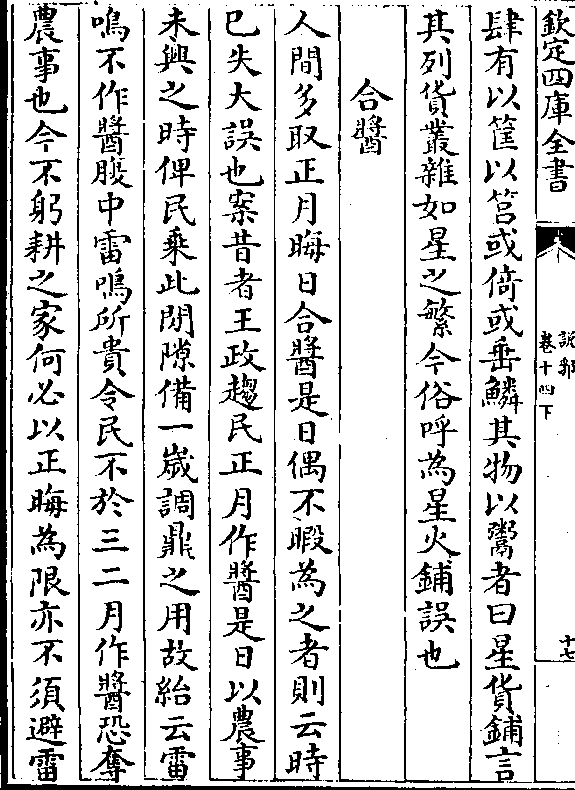 欽定四庫全書
說郛
卷十四下
十七
肆有以筐以筥或倚或垂鱗其物以鬻者曰星貨鋪言
其列貨叢雜如星之繁今俗呼為星火鋪誤也
合醬
人間多取正月晦日合醬是日偶不暇為之者則云時
已失大誤也案昔者王政趨民正月作醬是日以農事
未興之時俾民乘此閒隙備一歲調鼎之用故紿云雷
鳴不作醬腹中雷鳴所貴令民不於三二月作醬恐奪
農事也今不躬耕之家何必以正晦為限亦不須避雷